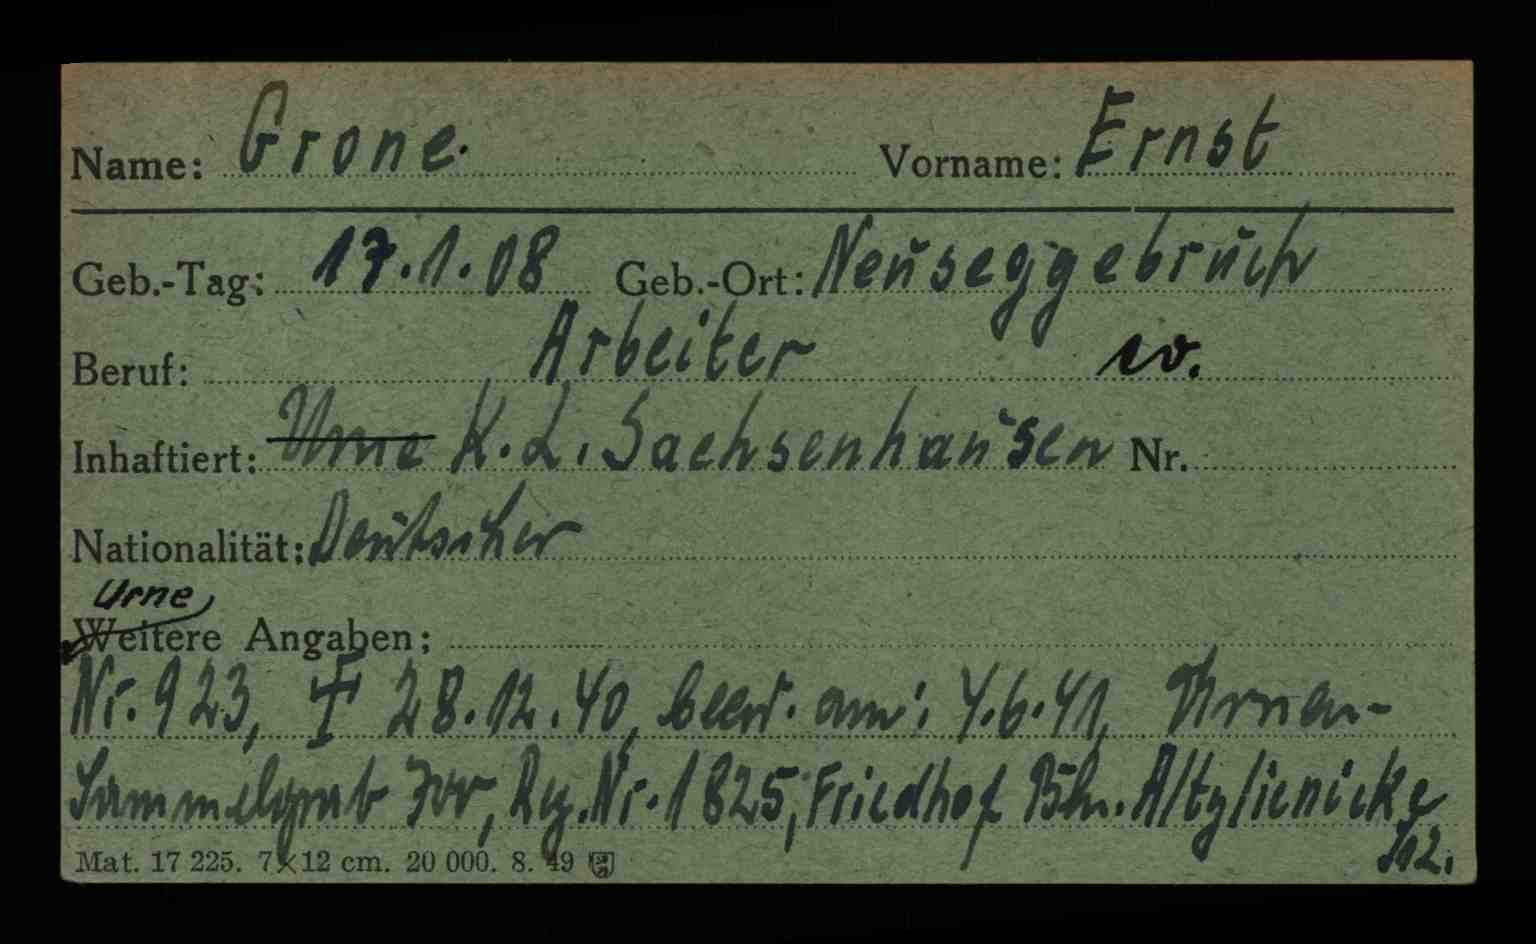 Name: Grone. Vorname: Ernst
Geb.-Tag: 17.1.08 Geb.-Ort: Neuseggebruch
Beruf: Arbeiter w.
Inhaftiert: Urne K.L. Sachsenhausen Nr.
Nationalität: Deutscher
Urne
Weitere Angaben:
Nr. 923, † 28.12.40, beerd. am: 4.6.41, Urnen-
Sammelgrab, Rg. Nr. 1825, Friedhof Bln. Altglienicke
Mat. 17 225. 7×12 cm. 20 000. 8. 49